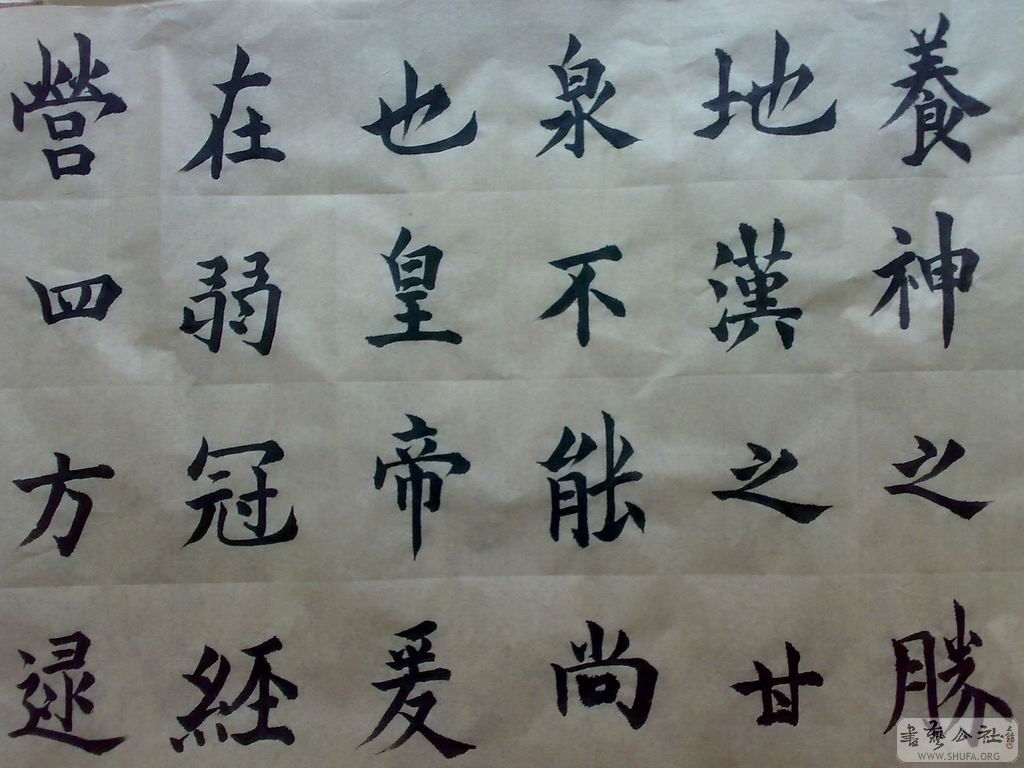 養神之勝
地漢之甘
泉不能尚
也皇帝爰
在弱冠經
營四方逯
書藝公社
WWW.SHUFA.ORG